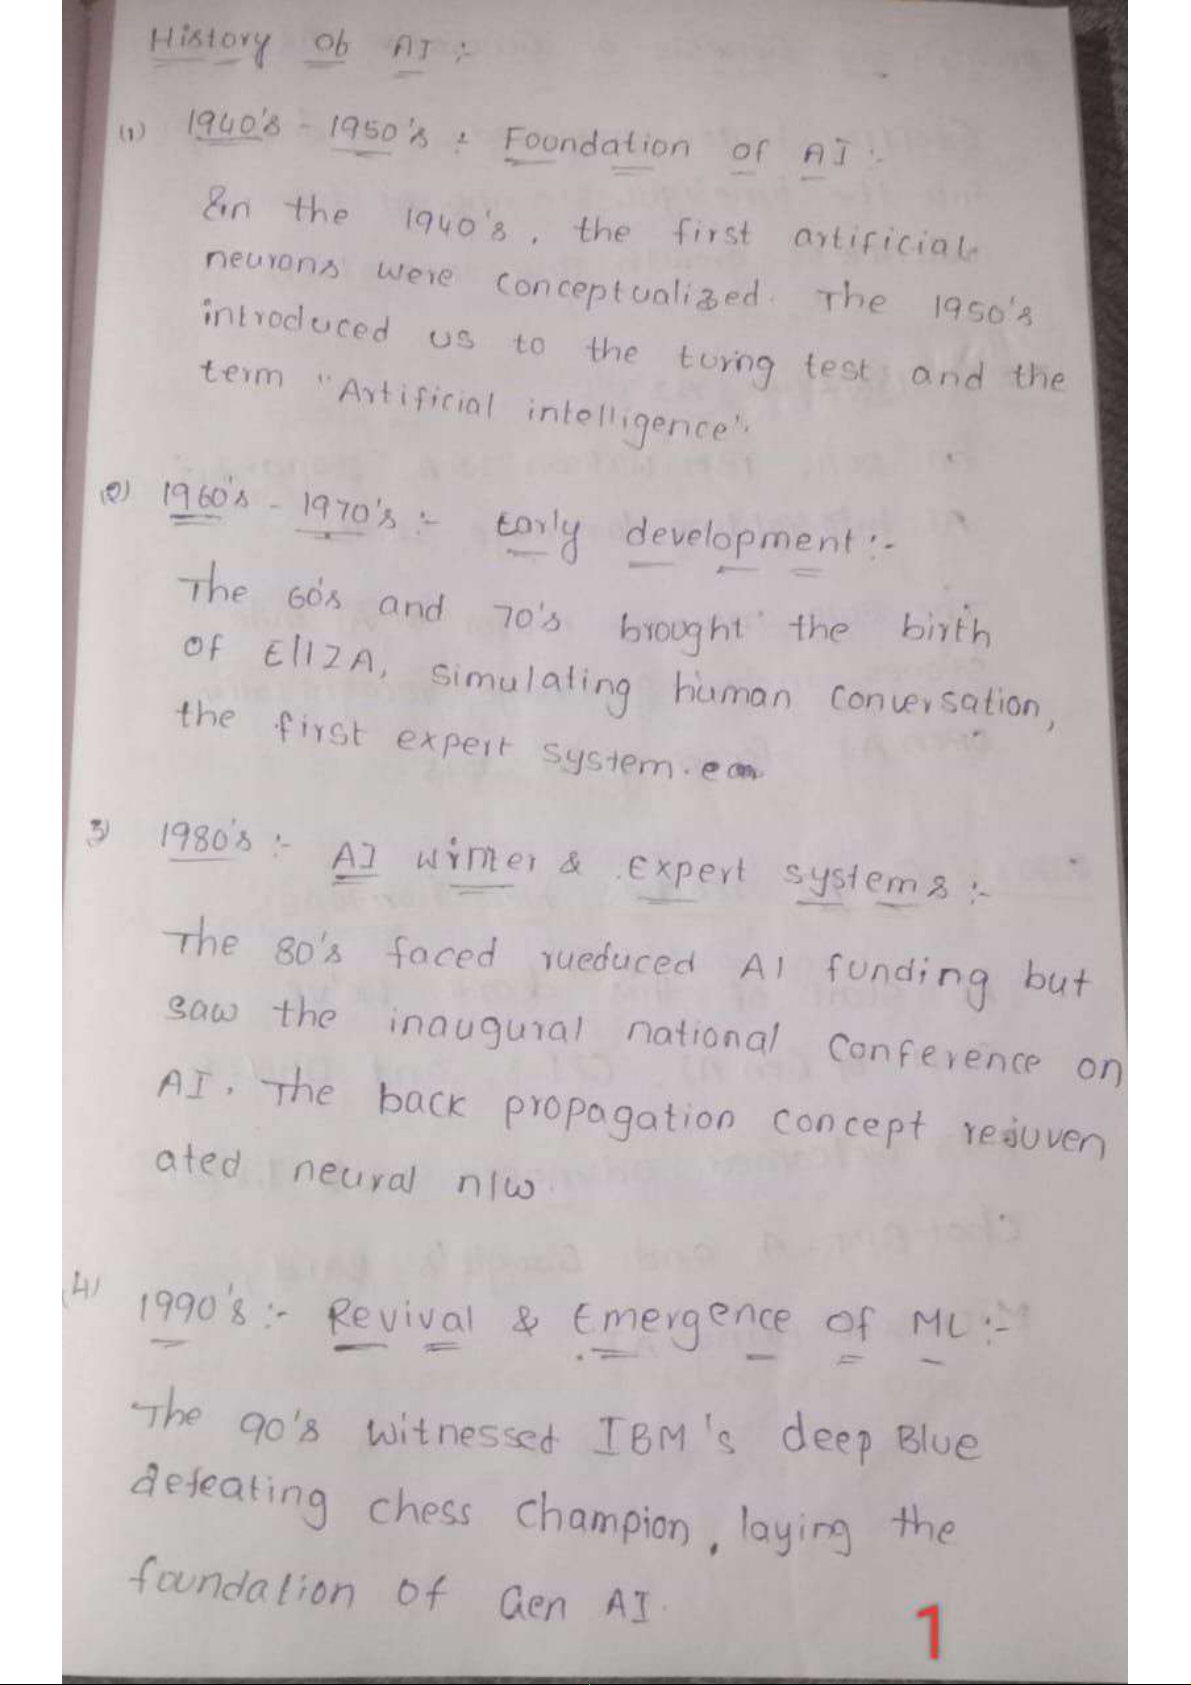 History of AI :-
(1) 1940's - 1950's : Foundation of AI :-
In the 1940's, the first artificial
neurons were conceptualized. The 1950's
introduced us to the turing test and the
term "Artificial intelligence".
(2) 1960's - 1970's :- Early development :-
The 60's and 70's brought the birth
of ElIZA, simulating human conversation,
the first expert system.
3) 1980's :- AI winter & Expert systems :-
The 80's faced rueduced AI funding but
saw the inaugural national conference on
AI. The back propagation concept rejuven
ated neural n/w.
(4) 1990's :- Revival & Emergence of ML :-
The 90's witnessed IBM's deep Blue
defeating chess champion, laying the
foundation of Gen AI.
1